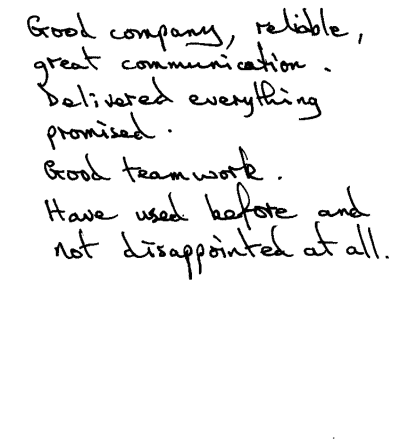 Good company, reliable,
great communication.
Delivered everything
promised.
Good teamwork.
Have used before and
not disappointed at all.